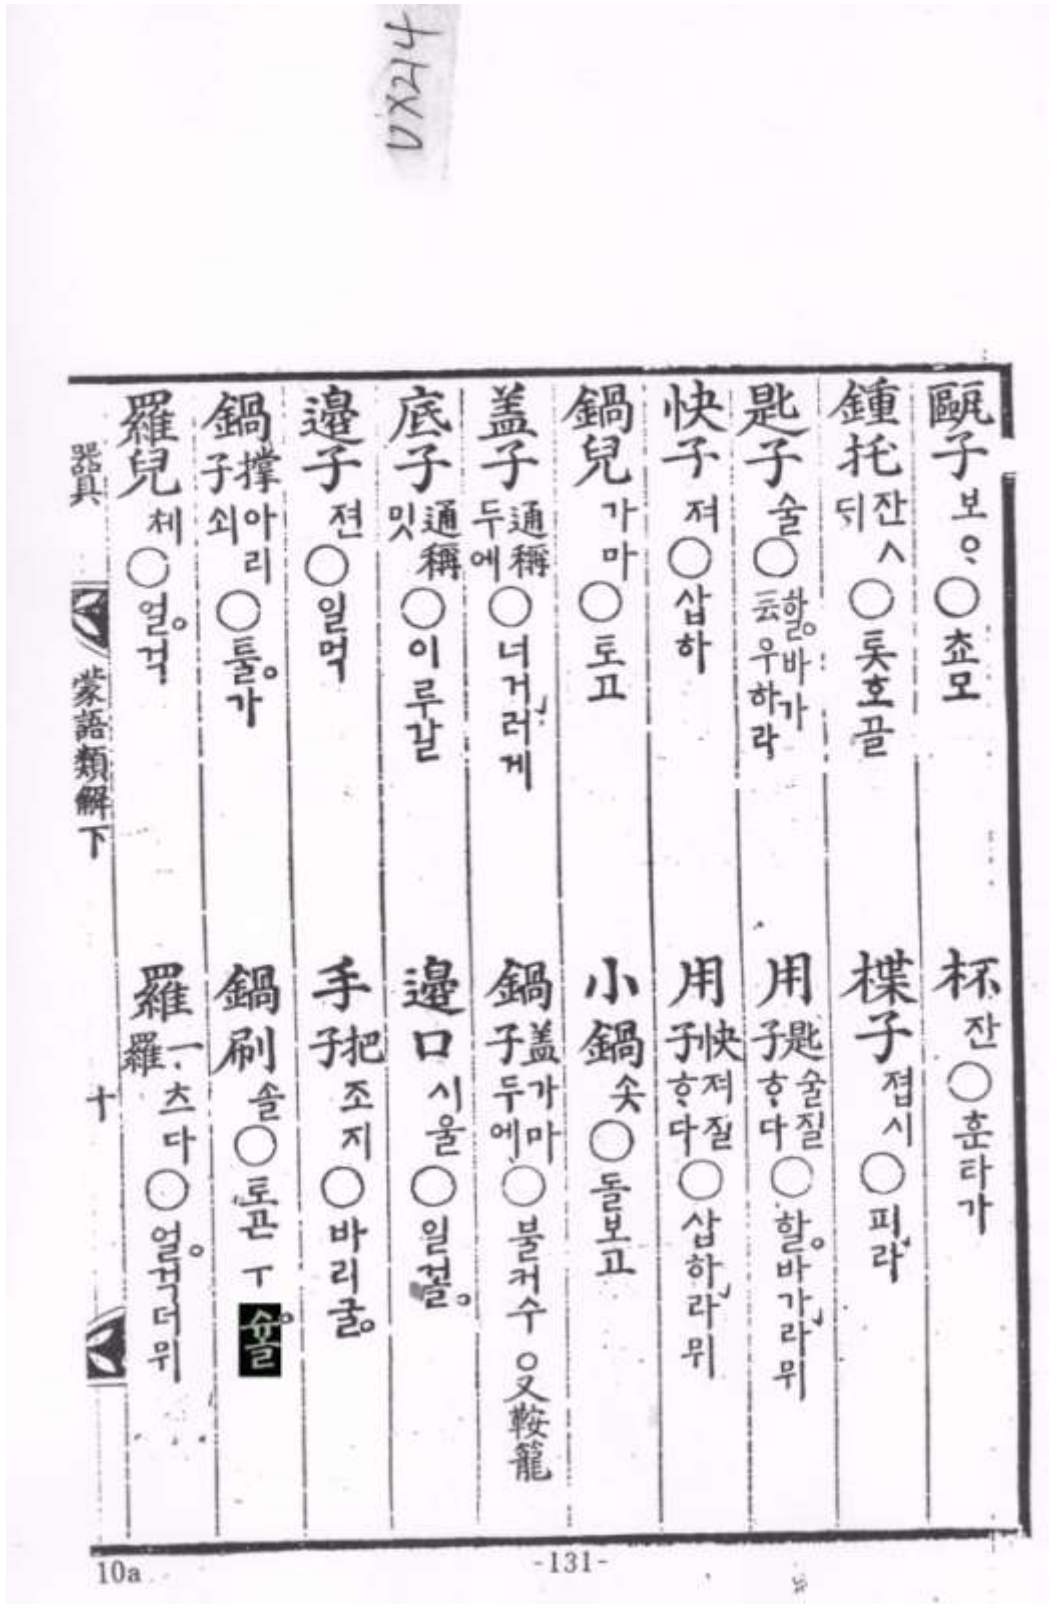 甌子 보ᄋᆞ ○ 쵸모
杯 잔 ○ 훈타가
鍾托 잔ㅅ뒤 ○ 톳호끌
楪子 졉시 ○ 피라
匙子 술 ○ 할바가 一云 우하라
用匙子 술질ᄒᆞ다 ○ 할바가라뮈
快子 져 ○ 삽하
用快子 져질ᄒᆞ다 ○ 삽하라뮈
鍋兒 가마 ○ 토고
小鍋 솟 ○ 돌보고
盖子 通稱두에 ○ 너거러게
鍋盖子 가마두에 ○ 불커수 ○又鞍籠
底子 通稱밋 ○ 이루갈
邊口 시울 ○ 일걸
邊子 젼 ○ 일먹
手把子 조지 ○ 바리굴
鍋撑子 아리쇠 ○ 툴가
鍋刷 솔 ○ 토ㅜ
羅兒 체 ○ 얼걱
羅一羅 츠다 ○ 얼걱더뮈
器具
蒙語類解下
十
10a
-131-